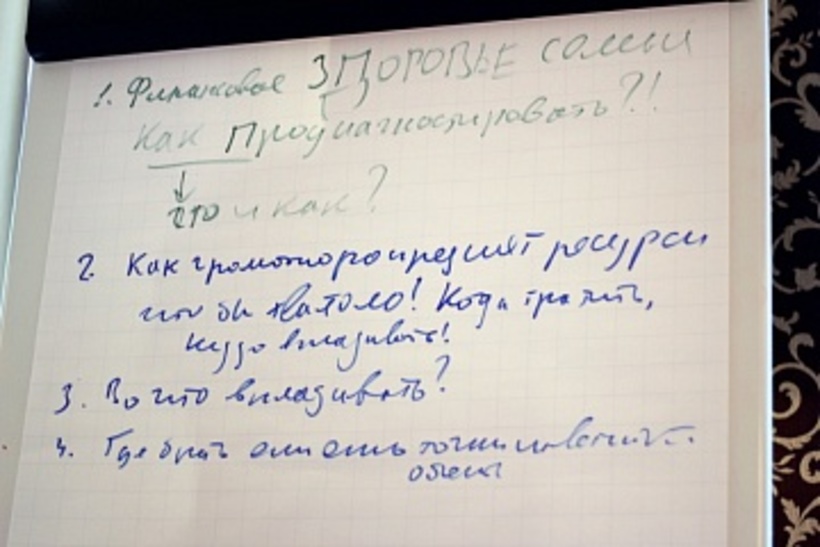 1. Финансовое ЗДОРОВЬЕ семьи
Как продиагностировать?!
что и как?
2. Как грамотно распределять ресурсы
что бы хватало! Когда тратить,
куда вкладывать!
3. Во что вкладывать?
4. Где брать если есть точки
объект